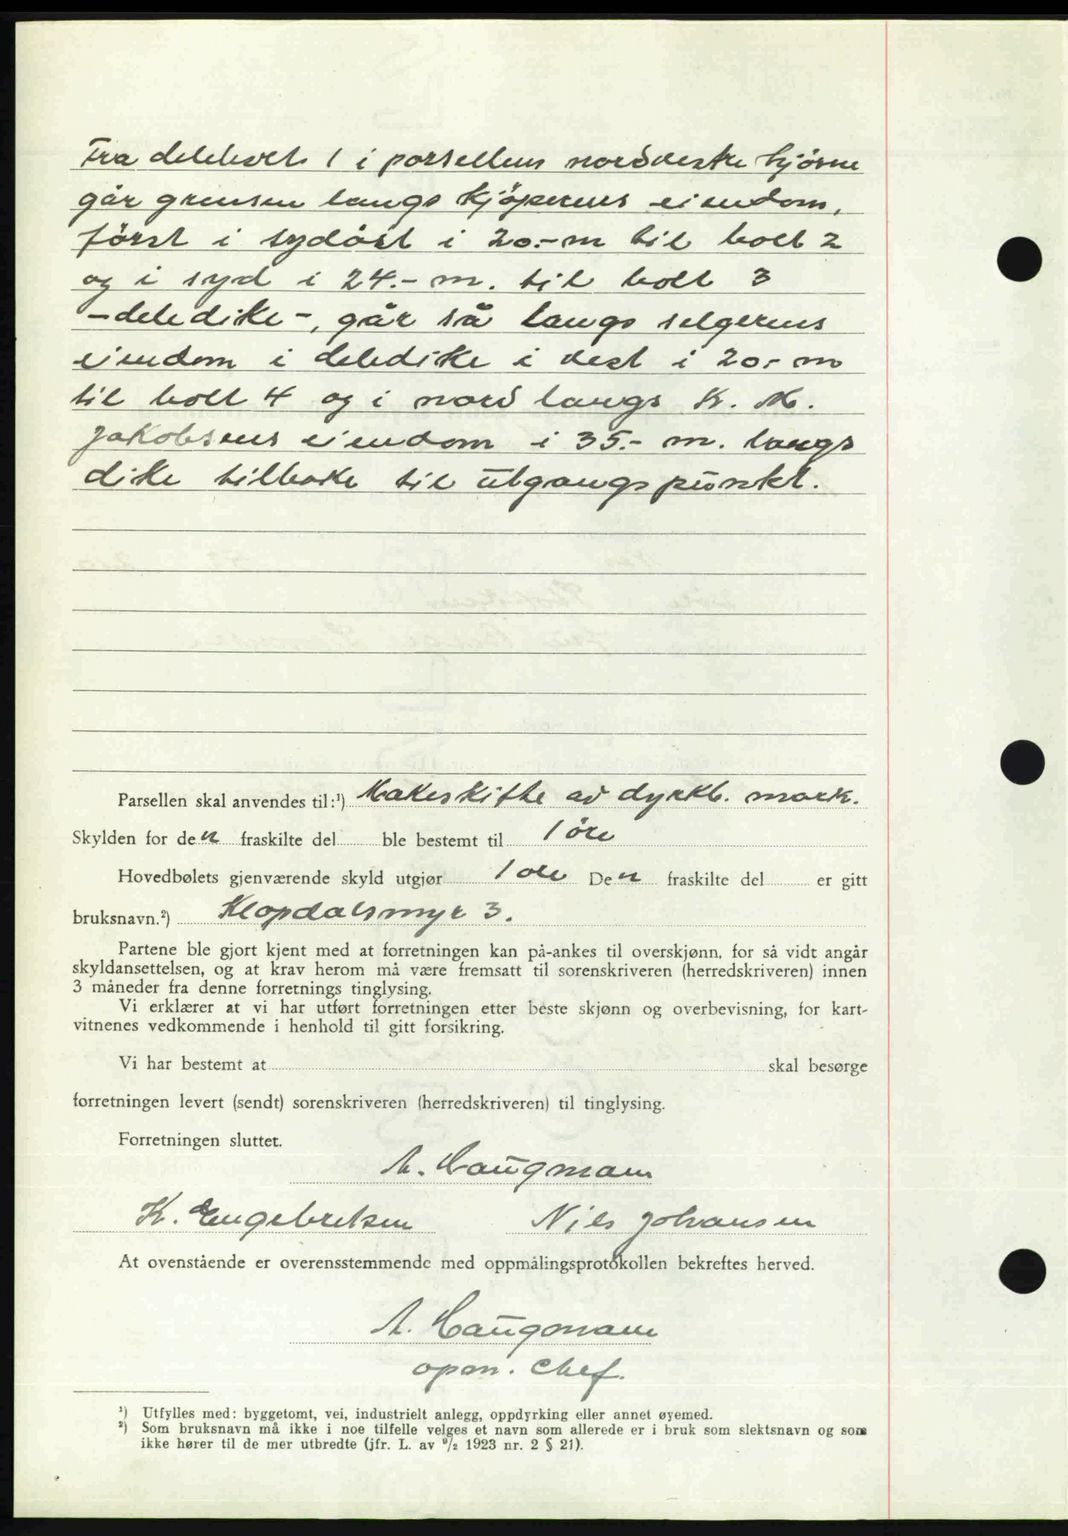 Fra delebolt 1 i parsellens nordvestre hjörne
går grensen langs kjöperens eiendom,
först i sydöst i 20.- m til bolt 2
og i syd i 24.- m. til bolt 3
- deledike -, går så langs selgerens
eiendom i deledike i vest i 20.- m
til bolt 4 og i nord langs K. M.
Jakobsens eiendom i 35.- m. langs
dike tilbake til utgangspunkt.
Parsellen skal anvendes til:¹) Makeskifte av dyrkb. mark.
Skylden for den fraskilte del ble bestemt til 1 öre
Hovedbølets gjenværende skyld utgjør 1 öre Den fraskilte del er gitt
bruksnavn.²) Klopdalsmyr 3.
Partene ble gjort kjent med at forretningen kan på-ankes til overskjønn, for så vidt angår
skyldansettelsen, og at krav herom må være fremsatt til sorenskriveren (herredskriveren) innen
3 måneder fra denne forretnings tinglysing.
Vi erklærer at vi har utført forretningen etter beste skjønn og overbevisning, for kart-
vitnenes vedkommende i henhold til gitt forsikring.
Vi har bestemt at skal besørge
forretningen levert (sendt) sorenskriveren (herredskriveren) til tinglysing.
Forretningen sluttet.
A. Haugmann
K. Engebretsen Nils Johansen
At ovenstående er overensstemmende med oppmålingsprotokollen bekreftes herved.
A. Haugmann
opm. chef.
¹) Utfylles med: byggetomt, vei, industrielt anlegg, oppdyrking eller annet øyemed.
²) Som bruksnavn må ikke i noe tilfelle velges et navn som allerede er i bruk som slektsnavn og som
ikke hører til de mer utbredte (jfr. L. av ⁹/₂ 1923 nr. 2 § 21).